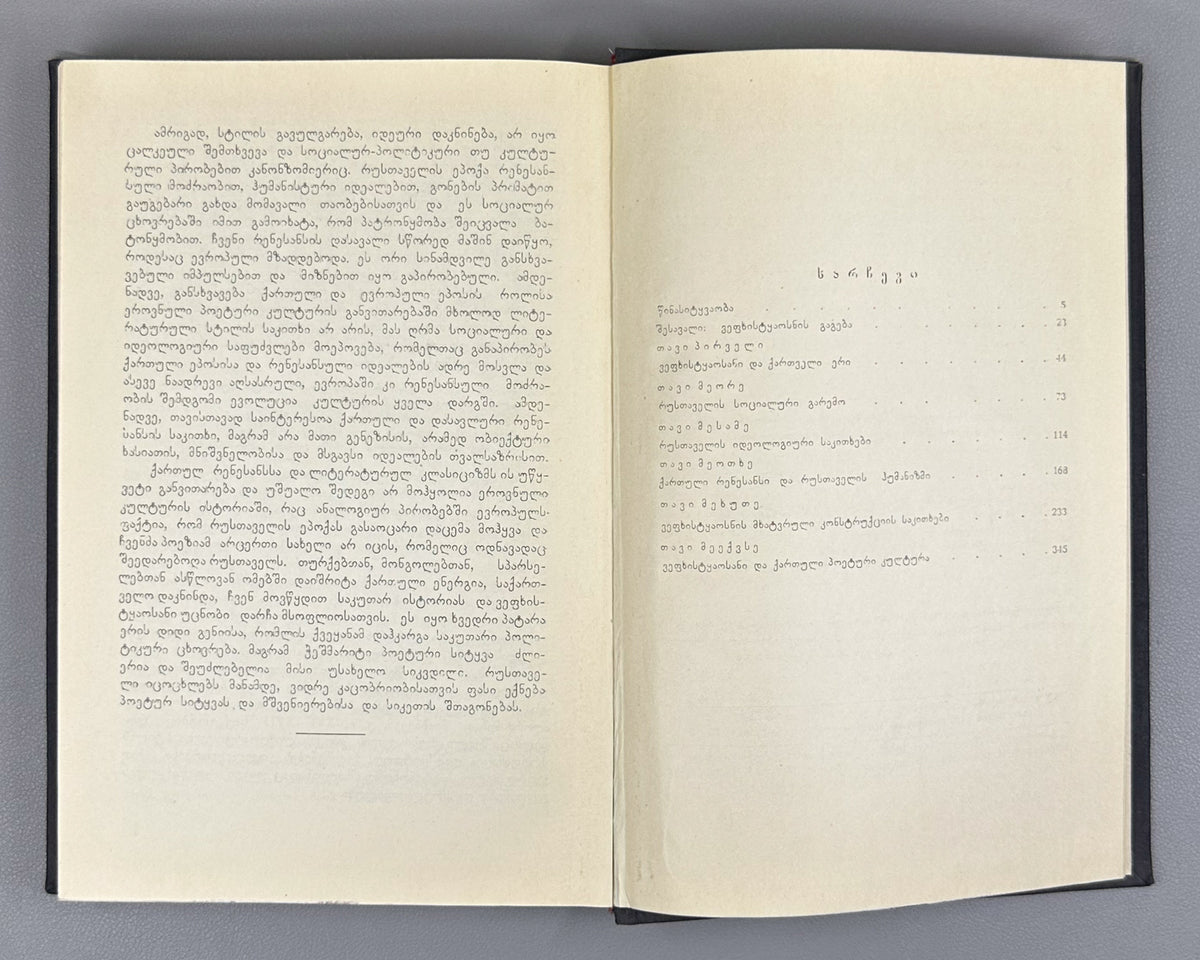 ამრიგად, სტილის გავულგარება, იდეური დაკნინება, არ იყო
ცალკეული შემთხვევა და სოციალურ-პოლიტიკური თუ კულტუ-
რული პირობებით კანონზომიერიც. რუსთაველის ეპოქა რენესან-
სული მოძრაობით, ჰუმანისტური იდეალებით, გონების პრიმატით
გაუგებარი გახდა მომავალი თაობებისათვის და ეს სოციალურ
ცხოვრებაში იმით გამოიხატა, რომ პატრონყმობა შეიცვალა ბა-
ტონყმობით. ჩვენი რენესანსის დასავალი სწორედ მაშინ დაიწყო,
როდესაც ევროპული მზადდებოდა. ეს ორი სინამდვილე განსხვა-
ვებული იმპულსებით და მიზნებით იყო გაპირობებული. ამდე-
ნადვე, განსხვავება ქართული და ევროპული ეპოსის როლისა
ეროვნული პოეტური კულტურის განვითარებაში მხოლოდ ლიტე-
რატურული სტილის საკითხი არ არის, მას ღრმა სოციალური და
იდეოლოგიური საფუძვლები მოეპოვება, რომელთაც განაპირობეს
ქართული ეპოსისა და რენესანსული იდეალების ადრე მოსვლა და
ასევე ნაადრევი აღსასრული, ევროპაში კი რენესანსული მოძრა-
ობის შემდგომი ევოლუცია კულტურის ყველა დარგში. ამდე-
ნადვე, თავისთავად საინტერესოა ქართული და დასავლური რენე-
სანსის საკითხი, მაგრამ არა მათი გენეზისის, არამედ ობიექტური
ხასიათის, მნიშვნელობისა და მსგავსი იდეალების თვალსაზრისით.
ქართულ რენესანსსა და ლიტერატურულ კლასიციზმს ის უწყ-
ვეტი განვითარება და უშუალო შედეგი არ მოჰყოლია ეროვნული
კულტურის ისტორიაში, რაც ანალოგიურ პირობებში ევროპულს.
ფაქტია, რომ რუსთაველის ეპოქას გასაოცარი დაცემა მოჰყვა და
ჩვენმა პოეზიამ არცერთი სახელი არ იცის, რომელიც ოდნავადაც
შეედარებოდა რუსთაველს. თურქებთან, მონგოლებთან, სპარსე-
ლებთან ასწლოვან ომებში დაიშრიტა ქართული ენერგია, საქართ-
ველო დაკნინდა, ჩვენ მოვწყდით საკუთარ ისტორიას და ვეფხის-
ტყაოსანი უცნობი დარჩა მსოფლიოსათვის. ეს იყო ხვედრი პატარა
ერის დიდი გენიისა, რომლის ქვეყანამ დაჰკარგა საკუთარი პოლი-
ტიკური ცხოვრება. მაგრამ ჭეშმარიტი პოეტური სიტყვა ძლი-
ერია და შეუძლებელია მისი უსახელო სიკვდილი. რუსთავე-
ლი იცოცხლებს მანამდე, ვიდრე კაცობრიობისათვის ფასი ექნება
პოეტურ სიტყვას და მშვენიერებისა და სიკეთის შთაგონებას.
სარჩევი
წინასიტყვაობა . . . . . . . . 5
შესავალი: ვეფხისტყაოსნის გაგება . . . . . . 23
თავი პირველი
ვეფხისტყაოსანი და ქართველი ერი . . . . . . 44
თავი მეორე
რუსთაველის სოციალური გარემო . . . . . . 73
თავი მესამე
რუსთაველის იდეოლოგიური საკითხები . . . . . . 114
თავი მეოთხე
ქართული რენესანსი და რუსთაველის ჰუმანიზმი . . . . 168
თავი მეხუთე
ვეფხისტყაოსნის მხატვრული კონსტრუქციის საკითხები . . . . 233
თავი მეექვსე
ვეფხისტყაოსანი და ქართული პოეტური კულტურა . . . . 345